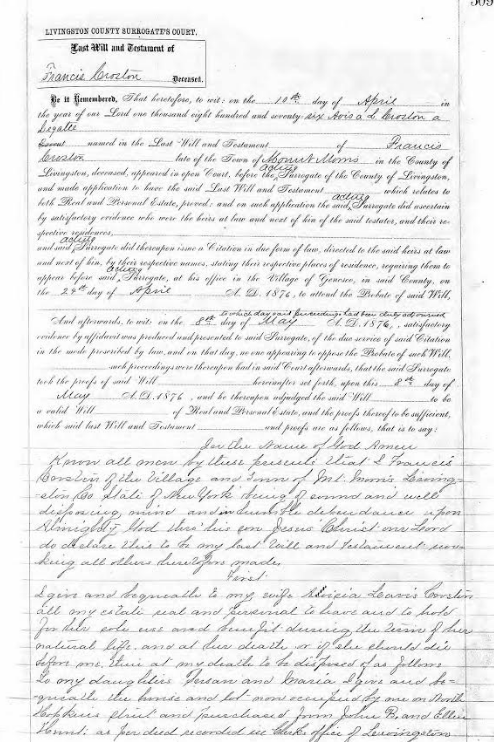 309
LIVINGSTON COUNTY SURROGATE'S COURT.
Last Will and Testament of
Francis Croston
Deceased.
Be it Remembered, That heretofore, to wit: on the 10th day of April in
the year of our Lord one thousand eight hundred and seventy six Avis a L Croston a
Legatee
named in the Last Will and Testament of Francis
Croston late of the Town of Mount Morris in the County of
acting
Livingston, deceased, appeared in open Court, before the Surrogate of the County of Livingston,
and made application to have the said Last Will and Testament which relates to
acting
both Real and Personal Estate, proved: and on such application the said Surrogate did ascertain
by satisfactory evidence who were the heirs at law and next of kin of the said testator, and their re-
spective residences
acting
and said Surrogate did thereupon issue a Citation in due form of law, directed to the said heirs at law
and next of kin, by their respective names, stating their respective places of residence, requiring them to
acting
appear before said Surrogate, at his office in the Village of Geneseo, in said County, on
the 24th day of April A. D. 1876, to attend the Probate of said Will,
to which day said proceedings had been duly adjourned
And afterwards, to wit: on the 8th day of May A. D. 1876, satisfactory
evidence by affidavit was produced and presented to said Surrogate, of the due service of said Citation
in the mode prescribed by law, and on that day, no one appearing to oppose the Probate of such Will,
such proceedings were thereupon had in said Court afterwards, that the said Surrogate
took the proofs of said Will hereinafter set forth, upon this 8th day of
May A. D. 1876, and he thereupon adjudged the said Will to be
a valid Will of Real and Personal Estate, and the proofs thereof to be sufficient,
which said last Will and Testament and proofs are as follows, that is to say:
In the Name of God Amen
Know all men by these presents that I Francis
Corston of the Village and Town of Mt. Morris Living-
ston Co State of New York being of sound and well
disposing mind and in humble dependance upon
Almighty God thro' his son Jesus Christ our Lord
do declare this to be my last Will and Testament revo-
king all others heretofore made.
First
I give and bequeath to my wife Lewis Corston
all my estate real and personal to have and to hold
for her sole use and benefit during the term of her
natural life, and at her death, or if she should die
before me, then at my death to be disposed of as follows
To my daughters Susan and Maria I give and be-
queath the house and lot now occupied by me on North
Hopkins Street and purchased from John B, and Ellen
Hunt: as per deed recorded in Clerks office of Livingston